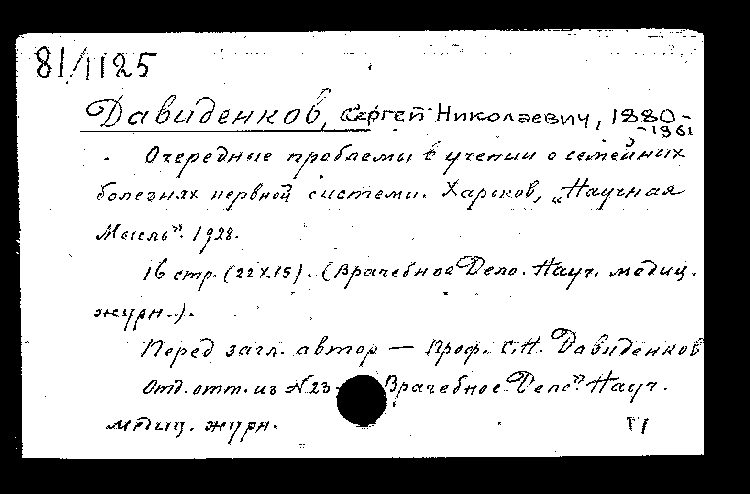 81/1125
Давиденков, Сергей Николаевич, 1880-
-1961
Очередные проблемы в учении о семейных
болезнях нервной системы. Харьков, „Научная
Мысль". 1928.
16 стр. (22х15). (Врачебное Дело. Науч. медиц.
журн.).
Перед загл. автор — Проф. С.Н. Давиденков
Отд. отт. из №23- Врачебное Дело" Науч.
медиц. журн.